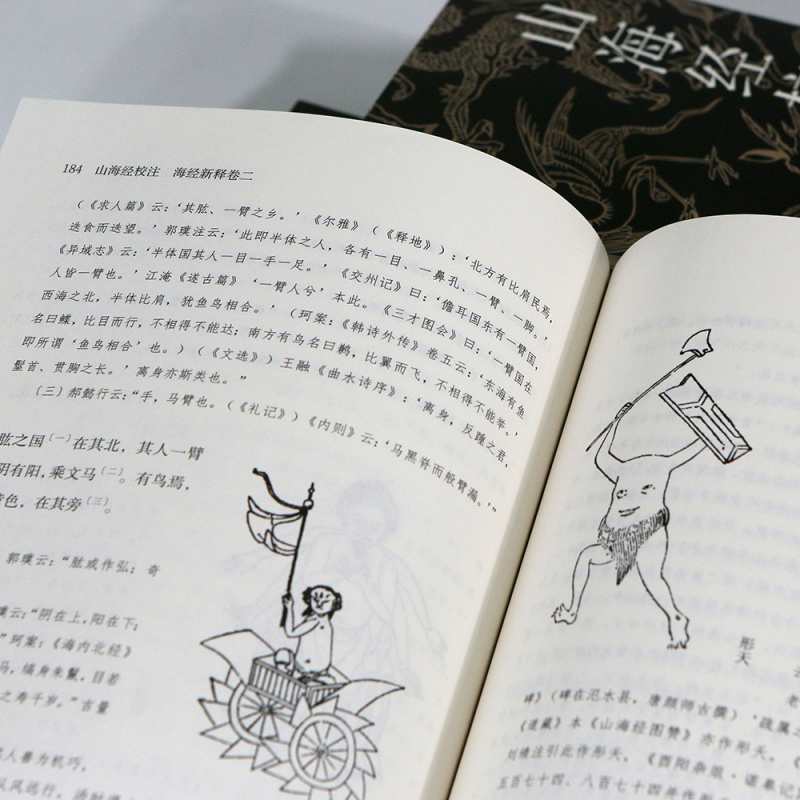 山海经校
184 山海经校注 海经新释卷二
（《求人篇》云：‘其肱、一臂之乡。’《尔雅》（《释地》）：‘北方有比肩民焉，
迭食而迭望。’郭璞注云：‘此即半体之人，各有一目、一鼻孔、一臂、一脚。’
《异域志》云：‘半体国其人一目一手一足。’《交州记》曰：‘儋耳国东有一臂国，
人皆一臂也。’江淹《遂古篇》‘一臂人兮’本此。《三才图会》曰：‘一臂国在
西海之北，半体比肩，犹鱼鸟相合。’（珂案：《韩诗外传》卷五云：‘东海有鱼
名曰鲽，比目而行，不相得不能达；南方有鸟名曰鹣，比翼而飞，不相得不能举。’
即所谓‘鱼鸟相合’也。）（《文选》）王融《曲水诗序》：‘离身，反踵之君，
髽首、贯胸之长。’离身亦斯类也。”
（三）郝懿行云：“手，马臂也。（《礼记》）《内则》云：‘马黑脊而般臂漏。’”
肱之国（一）在其北，其人一臂
阴有阳，乘文马（二）。有鸟焉，
色，在其旁（三）。
郭璞云：“肱或作弘；奇
璞云：“阴在上，阳在下；
”珂案：《海内北经》
马，缟身朱鬣，目若
之寿千岁。”吉量
人善为机巧，
从风远行，汤时得
形天
老
碑》（碑在汜水县，唐颜师古撰）‘疏属之
《道藏》本《山海经图赞》亦作形夭，《
刘绩注引此作形夭，《酉阳杂俎·诺皋记》
五百七十四、八百七十四并作形夭